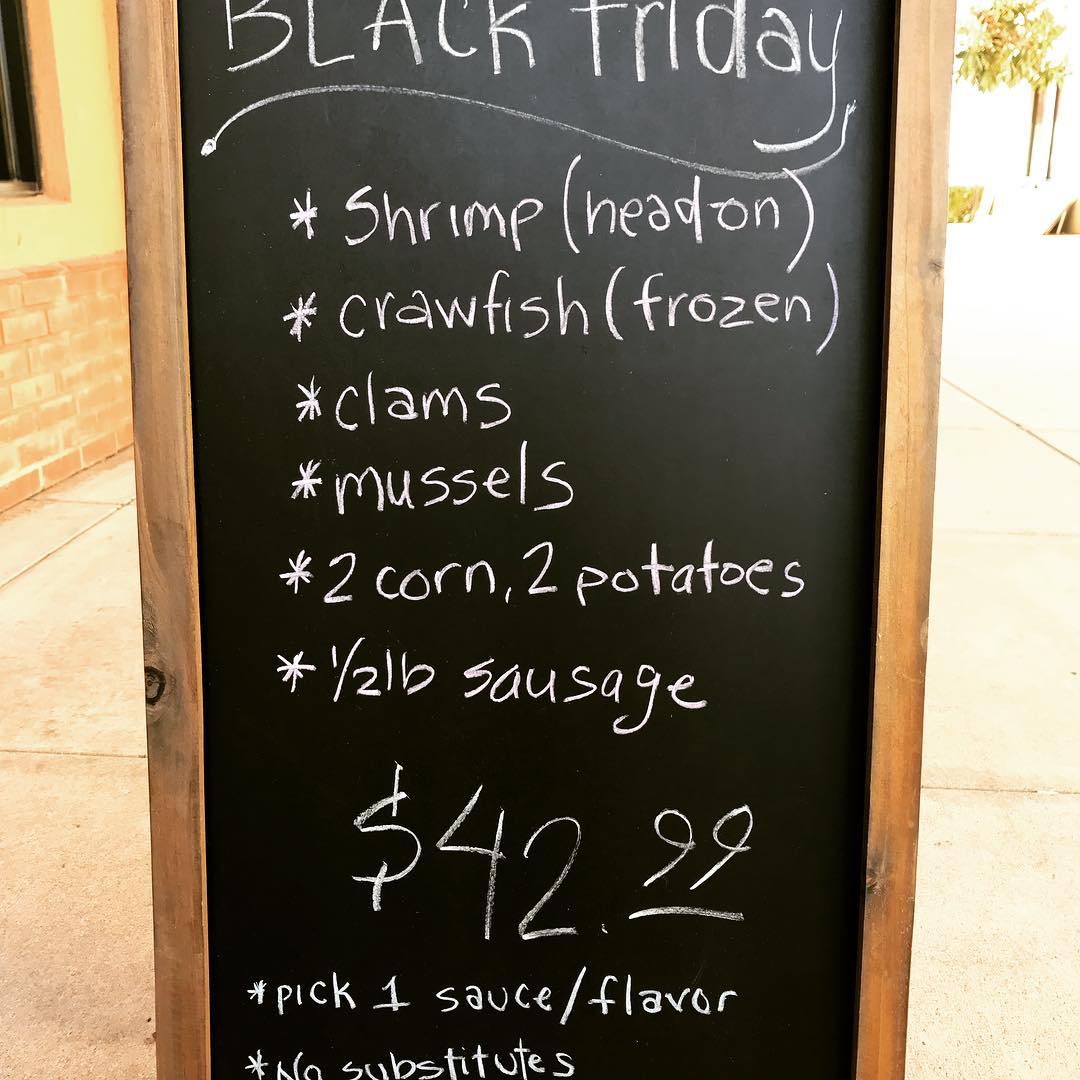 BLACK friday
* Shrimp (head-on)
* crawfish (frozen)
* clams
* mussels
* 2 corn, 2 potatoes
* 1/2lb sausage
$42.99
*pick 1 sauce/flavor
*No substitutes